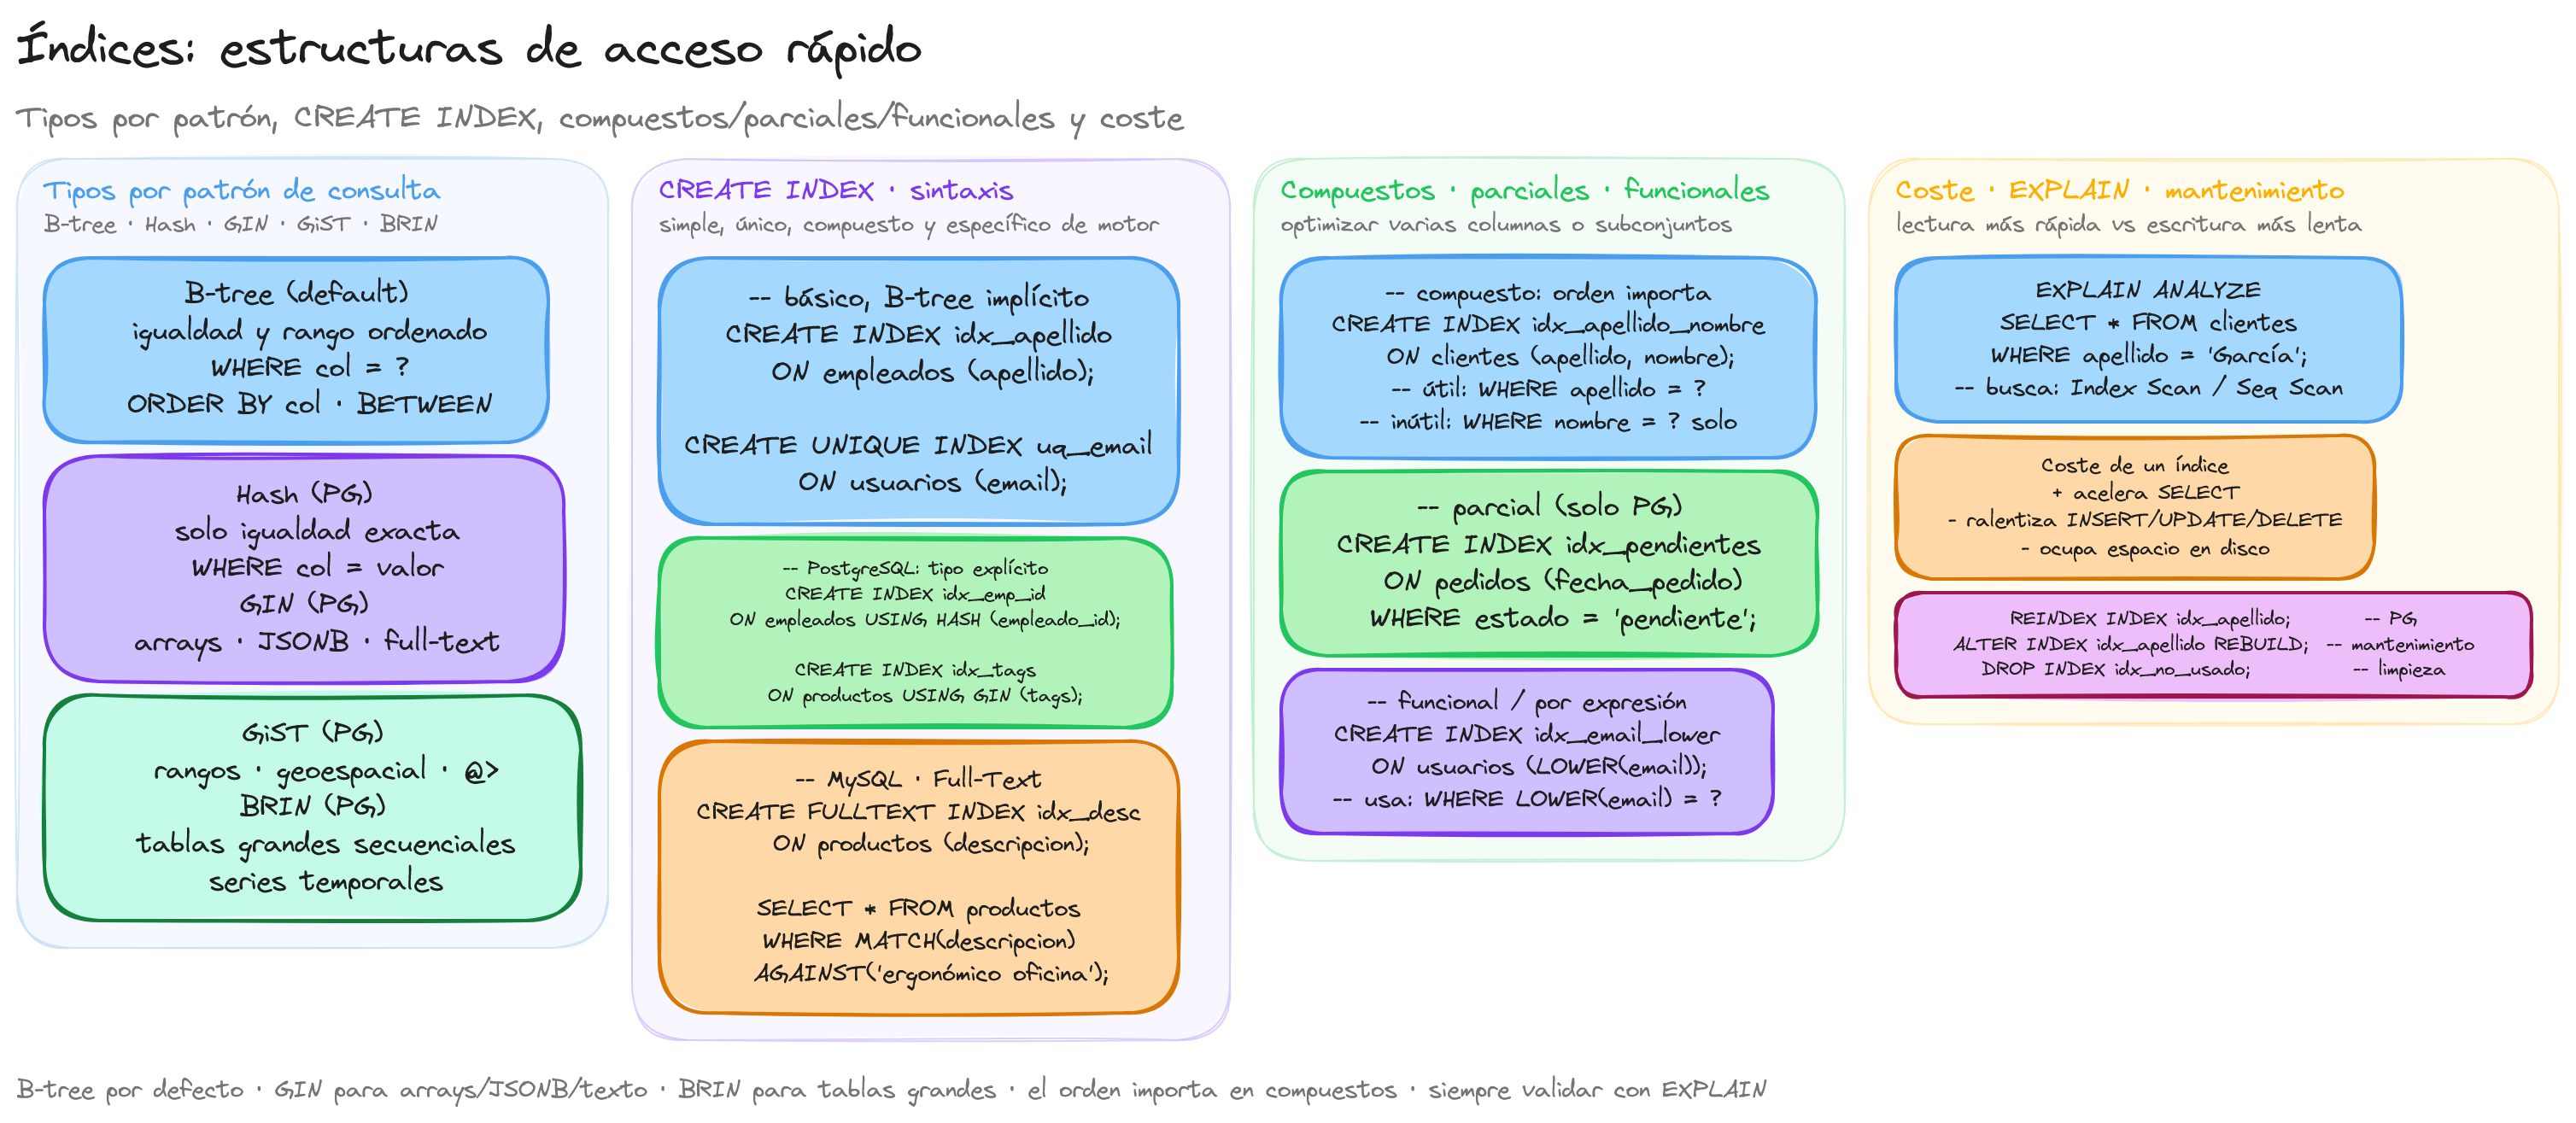 Índices: estructuras de acceso rápido
Tipos por patrón, CREATE INDEX, compuestos/parciales/funcionales y coste
Tipos por patrón de consulta
B-tree · Hash · GIN · GiST · BRIN
B-tree (default)
igualdad y rango ordenado
WHERE col = ?
ORDER BY col · BETWEEN
Hash (PG)
solo igualdad exacta
WHERE col = valor
GIN (PG)
arrays · JSONB · full-text
GiST (PG)
rangos · geoespacial · @>
BRIN (PG)
tablas grandes secuenciales
series temporales
CREATE INDEX · sintaxis
simple, único, compuesto y específico de motor
-- básico, B-tree implícito
CREATE INDEX idx_apellido
ON empleados (apellido);
CREATE UNIQUE INDEX uq_email
ON usuarios (email);
-- PostgreSQL: tipo explícito
CREATE INDEX idx_emp_id
ON empleados USING HASH (empleado_id);
CREATE INDEX idx_tags
ON productos USING GIN (tags);
-- MySQL · Full-Text
CREATE FULLTEXT INDEX idx_desc
ON productos (descripcion);
SELECT * FROM productos
WHERE MATCH(descripcion)
AGAINST('ergonómico oficina');
Compuestos · parciales · funcionales
optimizar varias columnas o subconjuntos
-- compuesto: orden importa
CREATE INDEX idx_apellido_nombre
ON clientes (apellido, nombre);
-- útil: WHERE apellido = ?
-- inútil: WHERE nombre = ? solo
-- parcial (solo PG)
CREATE INDEX idx_pendientes
ON pedidos (fecha_pedido)
WHERE estado = 'pendiente';
-- funcional / por expresión
CREATE INDEX idx_email_lower
ON usuarios (LOWER(email));
-- usa: WHERE LOWER(email) = ?
Coste · EXPLAIN · mantenimiento
lectura más rápida vs escritura más lenta
EXPLAIN ANALYZE
SELECT * FROM clientes
WHERE apellido = 'García';
-- busca: Index Scan / Seq Scan
Coste de un índice
+ acelera SELECT
- ralentiza INSERT/UPDATE/DELETE
- ocupa espacio en disco
REINDEX INDEX idx_apellido; -- PG
ALTER INDEX idx_apellido REBUILD; -- mantenimiento
DROP INDEX idx_no_usado; -- limpieza
B-tree por defecto · GIN para arrays/JSONB/texto · BRIN para tablas grandes · el orden importa en compuestos · siempre validar con EXPLAIN